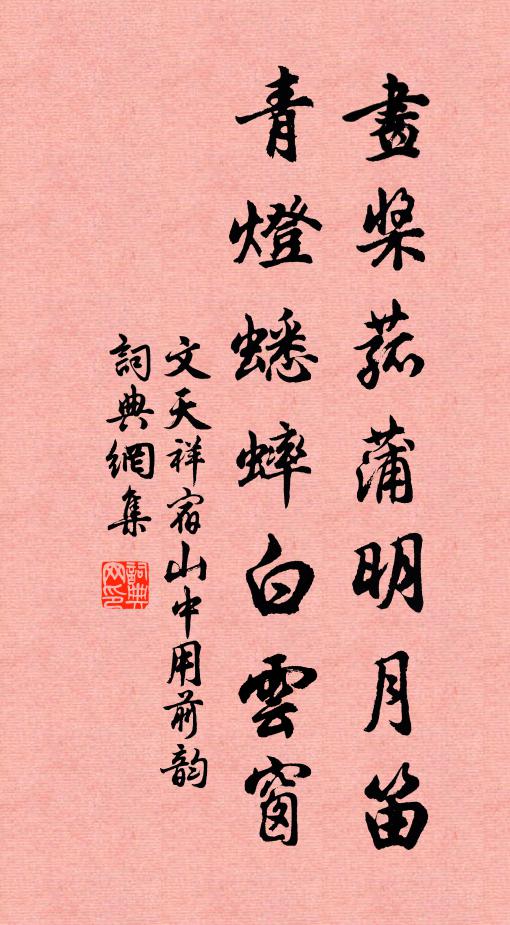 畫槳菰蒲明月笛
青燈蟋蟀白雲窗
文天祥宿山中用前韵
詞典網集
詞典
网印